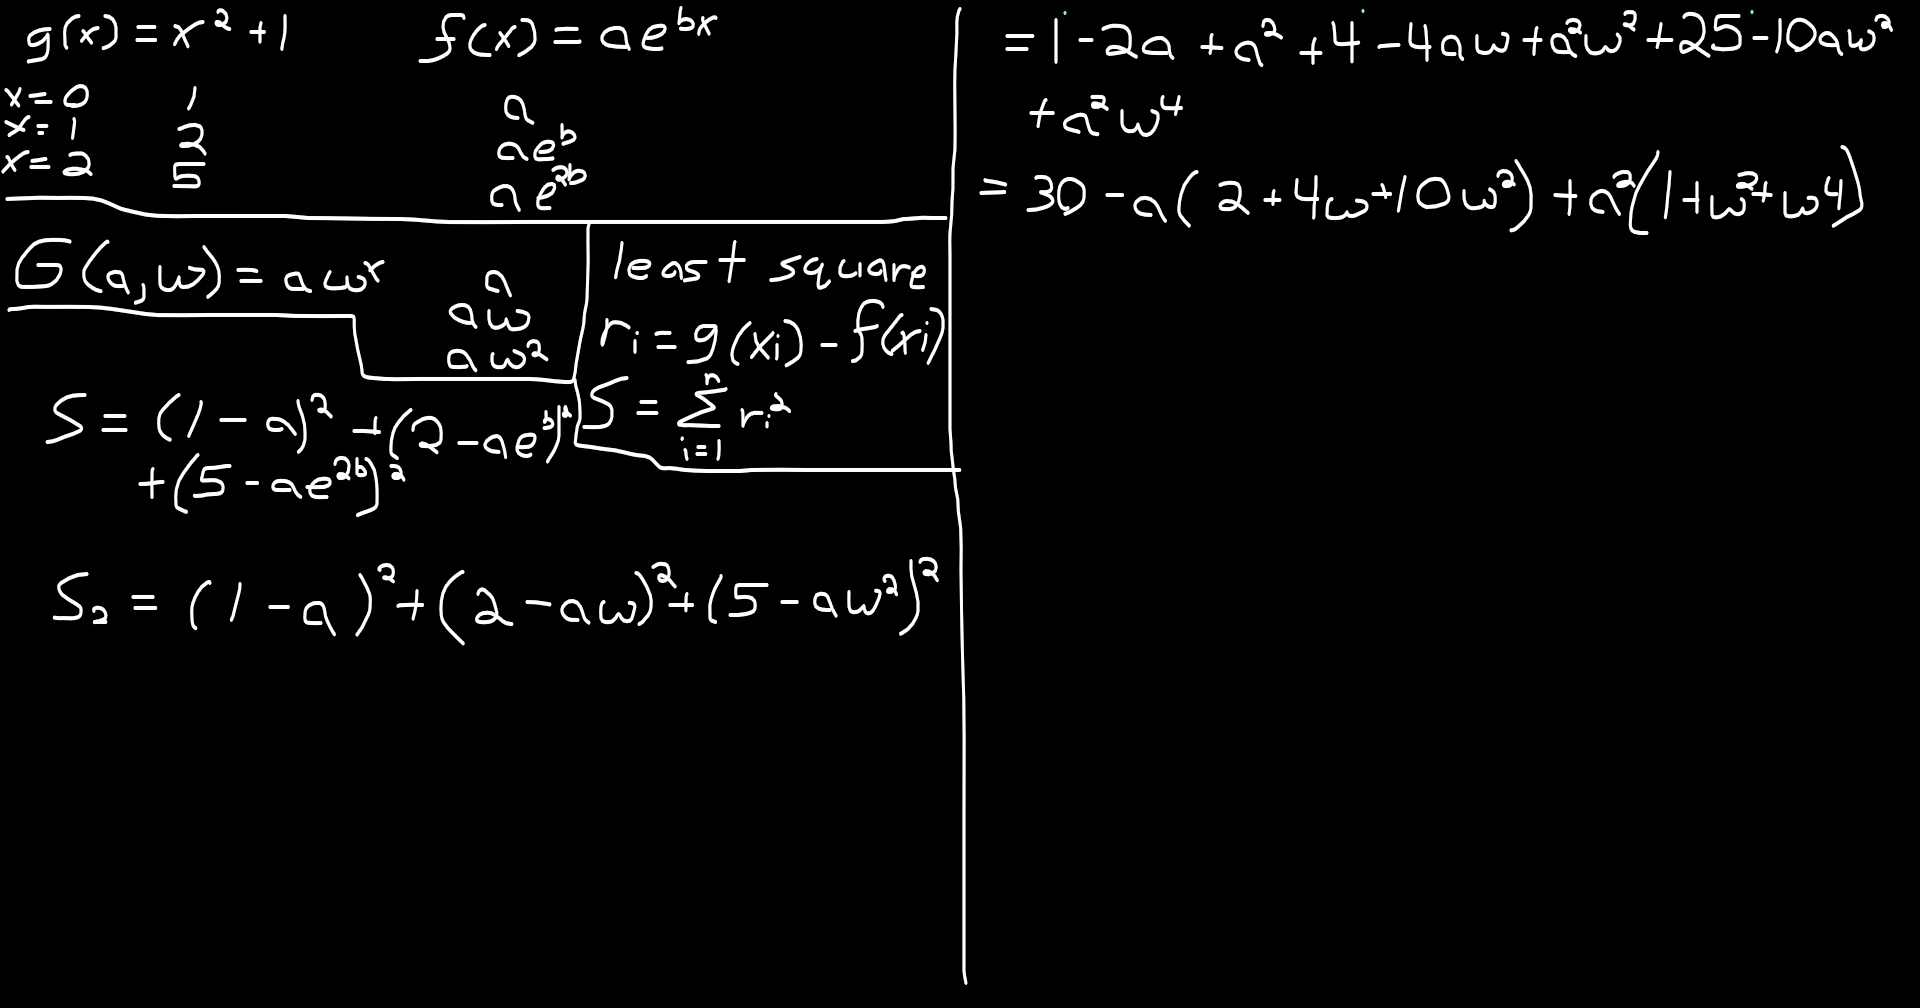 g(x) = x² + 1 f(x) = ae^{bx}
x = 0 1 a
x = 1 2 ae^b
x = 2 5 ae^{2b}
G(a, w) = aw^x
a
aw
aw²
least square
r_i = g(x_i) - f(x_i)
S = \sum_{i=1}^{n} r_i²
S = (1 - a)² + (2 - ae^b)²
+ (5 - ae^{2b})²
S₂ = (1 - a)² + (2 - aw)² + (5 - aw²)²
= 1 - 2a + a² + 4 - 4aw + a²w² + 25 - 10aw²
+ a²w⁴
= 30 - a(2 + 4w + 10w²) + a²(1 + w² + w⁴)